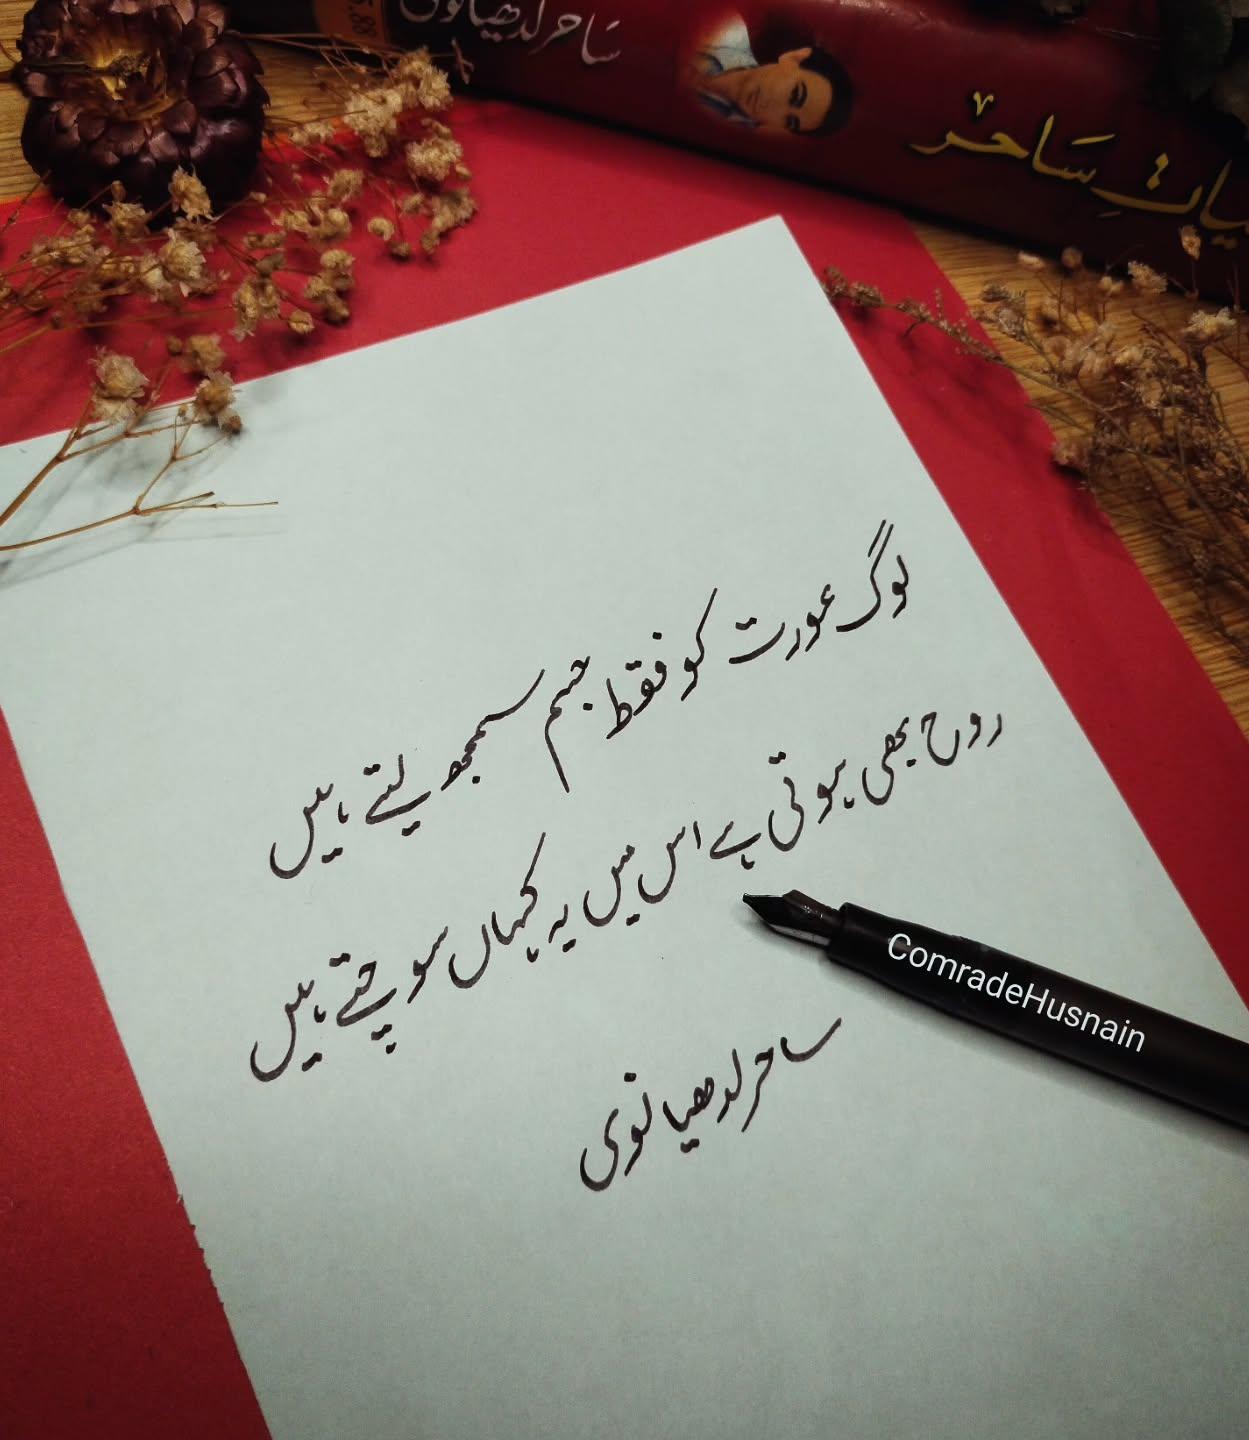 ساحر لدھیانوی
کلیاتِ ساحر
لوگ عورت کو فقط جسم سمجھ لیتے ہیں
روح بھی ہوتی ہے اس میں یہ کہاں سوچتے ہیں
ساحر لدھیانوی
ComradeHusnain